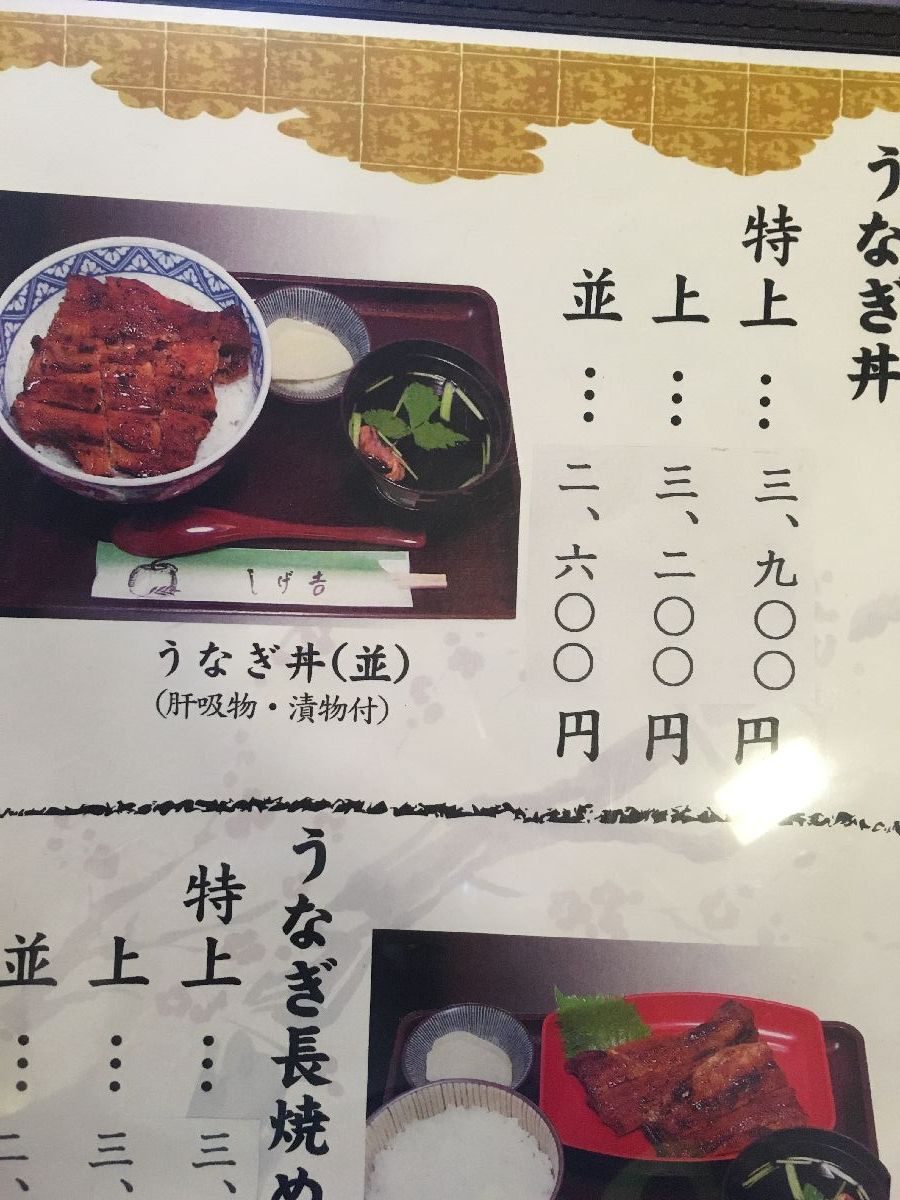 うなぎ丼
特上…三、九〇〇円
上…三、二〇〇円
並…二、六〇〇円
しげ吉
うなぎ丼(並)
(肝吸物・漬物付)
うなぎ長焼め
特上…三、
上…三、
並…二、